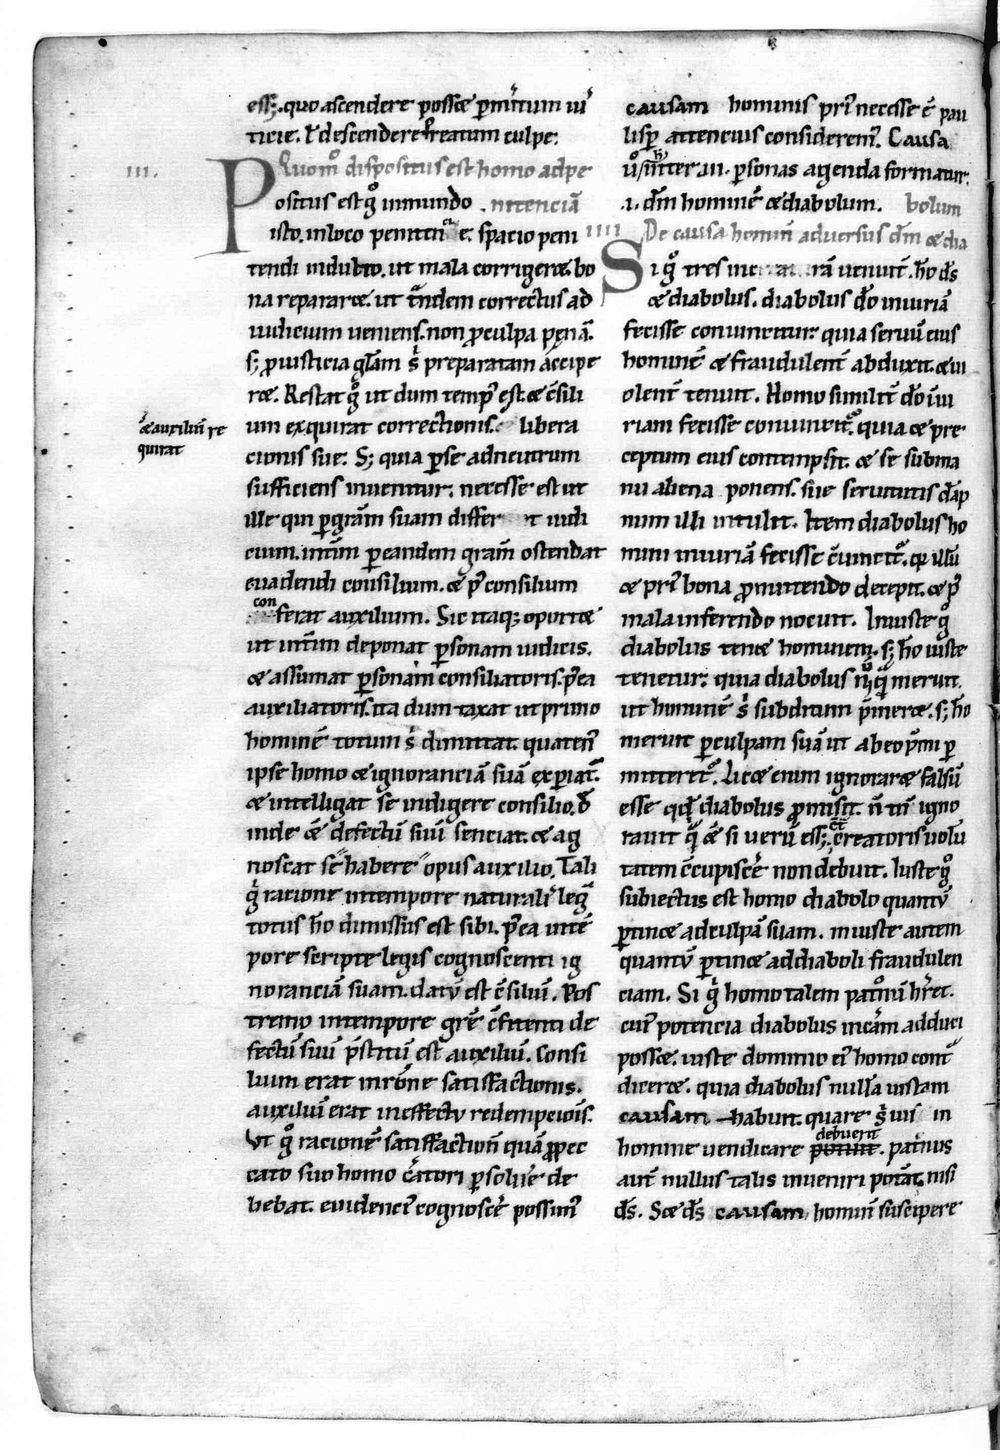 ess&; . quo ascendere posset p̄ meritum ius
ticie. ł descendere p̱ reatum culpe;
III.
Quom̊ dispositus est homo ad pe
nitenciā
Positus est g̊ in mundo
isto. in loco penitentie. spacio peni
tendi indulto. ut mala corrigeret. bo
na repararet. ut tandem correctus ad
iudicium ueniens. non p̱ culpa penā.
s; p̱ iusticia gl̄am s̓ preparatam accipe
ret. Restat g̊ ut dum tempꝰ est. & c̄sili
um exquirat correctionis. libera
& auxiliū re
quirat
cionis sue. S; quia ꝑ se ad neutrum
sufficiens inuenitur; necesse est ut
ille qui ꝑ gr̄am suam differt iudi
cium. int̄im ꝑ eandem gr̄am ostendat
euadendi consilium. & pꝰ consilium
conferat auxilium. Sic itaq; oportet
ut int̄im deponat ꝑsonam iudicis.
& assumat ꝑsonam consiliatoris. p̄ea
auxiliatoris. ita dum taxat ut primo
hominē totum s̓ dimittat. quatenꝰ
ipse homo & ignoranciā suā experiat᷑.
& intelligat se indigere consilio. d̄
inde & defectū suū senciat. & ag
noscat se habere opus auxilio. Tali
g̊ racione in tempore naturalis legis
totus h̄o dimissus est sibi. p̄ea in tē
pore scripte legis cognoscenti ig
noranciā suam. datū est c̄siliū. Pos
tremo in tempore gr̄e c̄fitenti de
fectū suū p̄stitū est auxiliū. Consi
lium erat in rōne satisfactionis.
auxiliū erat in effectu redempcionis.
Vt g̊ racionē satisfactionis quā p̱ pec
cato suo homo c̓atori ꝑsoluere de
bebat. euidencius cognoscere possimꝰ
causam hominis priꝰ necesse ē pau
lisꝑ attencius consideremꝰ. Causa
ů inter .III. ꝑsonas agenda formatur.
.i. dm̄ hominē & diabolum.
IIII
De causa hominis aduersus dm̄ & dia
bolum
Si g̊ tres ueniunt. h̄o ds̄
& diabolus. diabolus do̅ iniuriā
fecisse conuincitur; quia seruū eius
hominē & fraudulent̄ abduxit. & ui
olent̄ tenuit. Homo similit̄ do̅ iniu
riam fecisse conuincit᷑. quia & pre
ceptum eius contempsit. & se sub ma
nu aliena ponens. sue seruitutis dāp
num illi intulit. Item diabolus ho
mini iniuriā fecisse c̄uincit᷑. qꝛ illū
& priꝰ bona p̱mittendo decepit. & pꝰ
mala inferendo nocuit. Iniuste g̊
diabolus tenet hominem. s; h̄o iuste
tenetur; quia diabolus nūq̄ meruit.
ut hominē s̓ subditum p̄meret. s; h̄o
meruit ꝑ culpam suā ut ab eo p̄mi ꝑ
mitteret᷑. Licet enim ignoraret falsū
esse qd̄ diabolus p̱misit. n̄ tn̄ igno
rauit qđ & si uerū ess&; . c̄ creatoris uolū
tatem c̄cupiscere non debuit. Iuste g̊
subiectus est homo diabolo quantū
ꝑtinet ad culpā suam. iniuste autem
quantū ꝑtinet ad diaboli fraudulen
ciam. Si g̊ homo talem patronū h̄ret.
cuiꝰ potencia diabolus in cām adduci
posset. iuste dominio eiꝰ homo cont᷑
diceret. quia diabolus nullā iustam
causam habuit. quare s̓ ius in
homine uendicare debuerit potuit. patronus
aut̄ nullus talis inueniri poterat. nisi
ds̄. Set ds̄ causam hominis suscipere